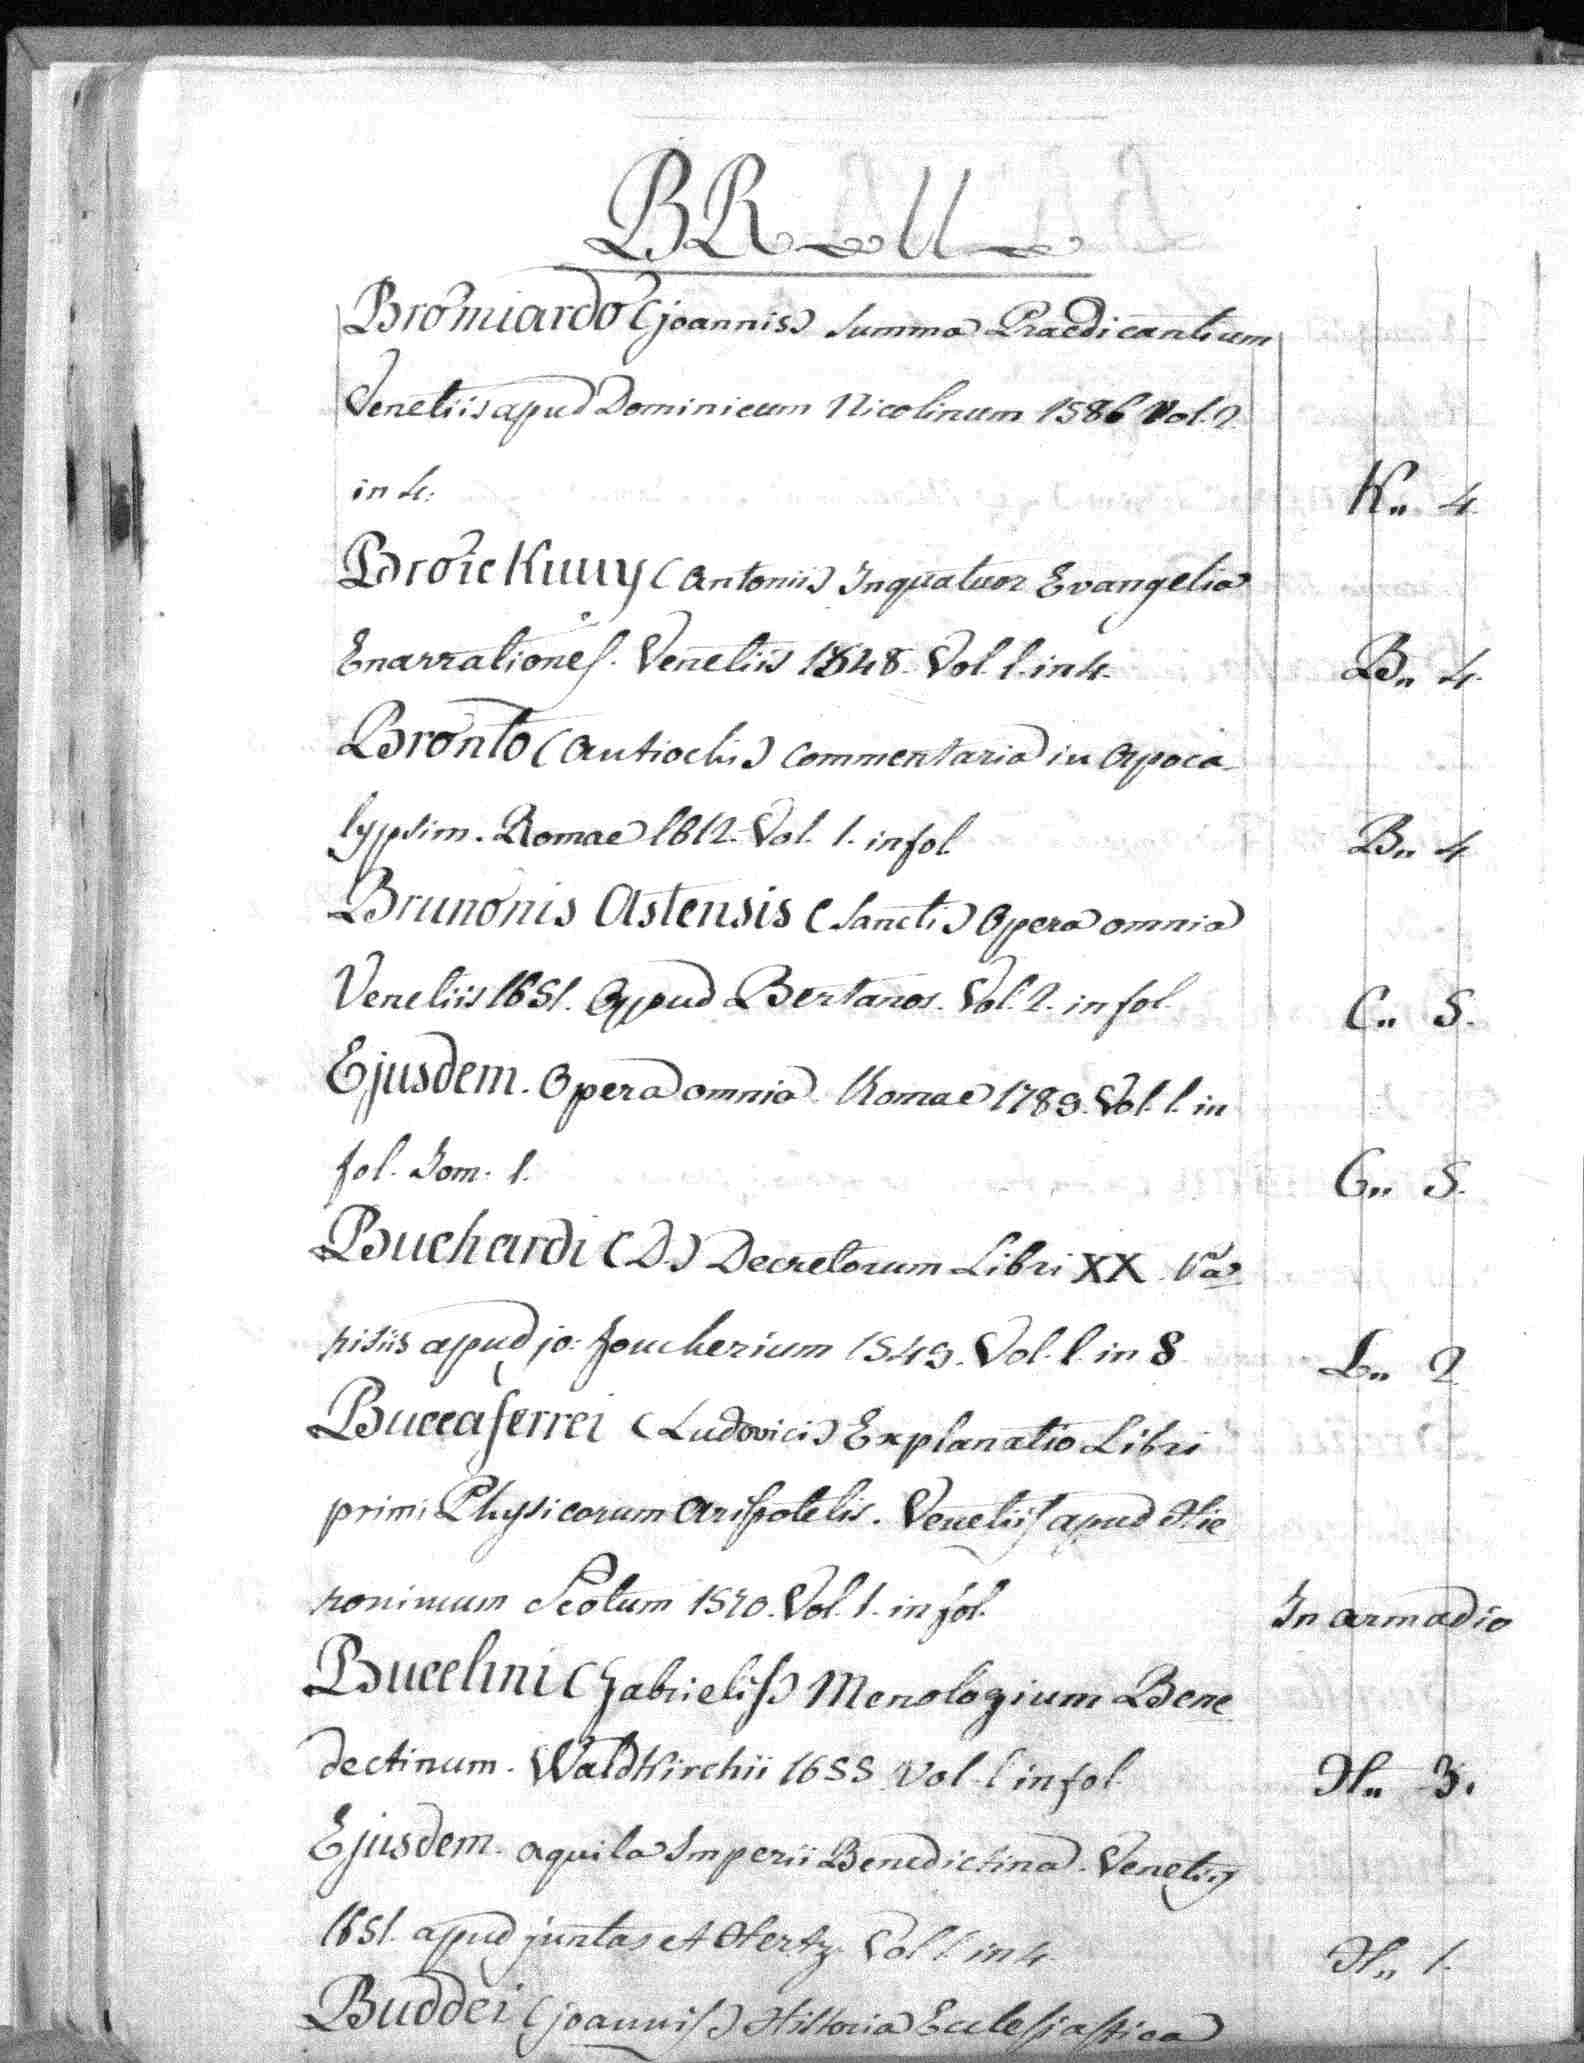 BR U
Bromiardo (joannis) Summa Praedicantium
Venetiis apud Dominicum Nicolinum 1586 Vol. 2.
in 4: K„ 4.
Broickuuy (Antonii) In quatuor Evangelia
Enarrationes. Venetiis 1548. Vol. 1. in 4. B„ 4.
Bronto (Antiochi) Commentaria in Apoca-
lypsim. Romae 1612. Vol. 1. in fol. B„ 4
Brunonis Astensis (Sancti) Opera omnia
Venetiis 1651. Apud Bertanos. Vol. 2. in fol. C„ 5.
Ejusdem. Opera omnia. Romae 1789. Vol. 1. in
fol. Tom. 1. C„ 5.
Buchardi (D.) Decretorum Libri XX. Pa
risiis apud jo: foucherium 1549. Vol. 1. in 8 L„ 2
Buccaferrei (Ludovici) Explanatio Libri
primi Physicorum Aristotelis. Venetiis apud Hie
ronimum Scotum 1570. Vol. 1. in fol. In armadio
Bucelini (Gabrielis) Menologium Bene
dectinum. Waldkirchii 1655. Vol. 1 in fol. H„ 3.
Ejusdem. Aquila Imperii Benedictina. Venetiis
1651. apud juntas et Hertz. Vol 1 in 4. H„ 1.
Buddei (joannis) Historia Ecclesiastica